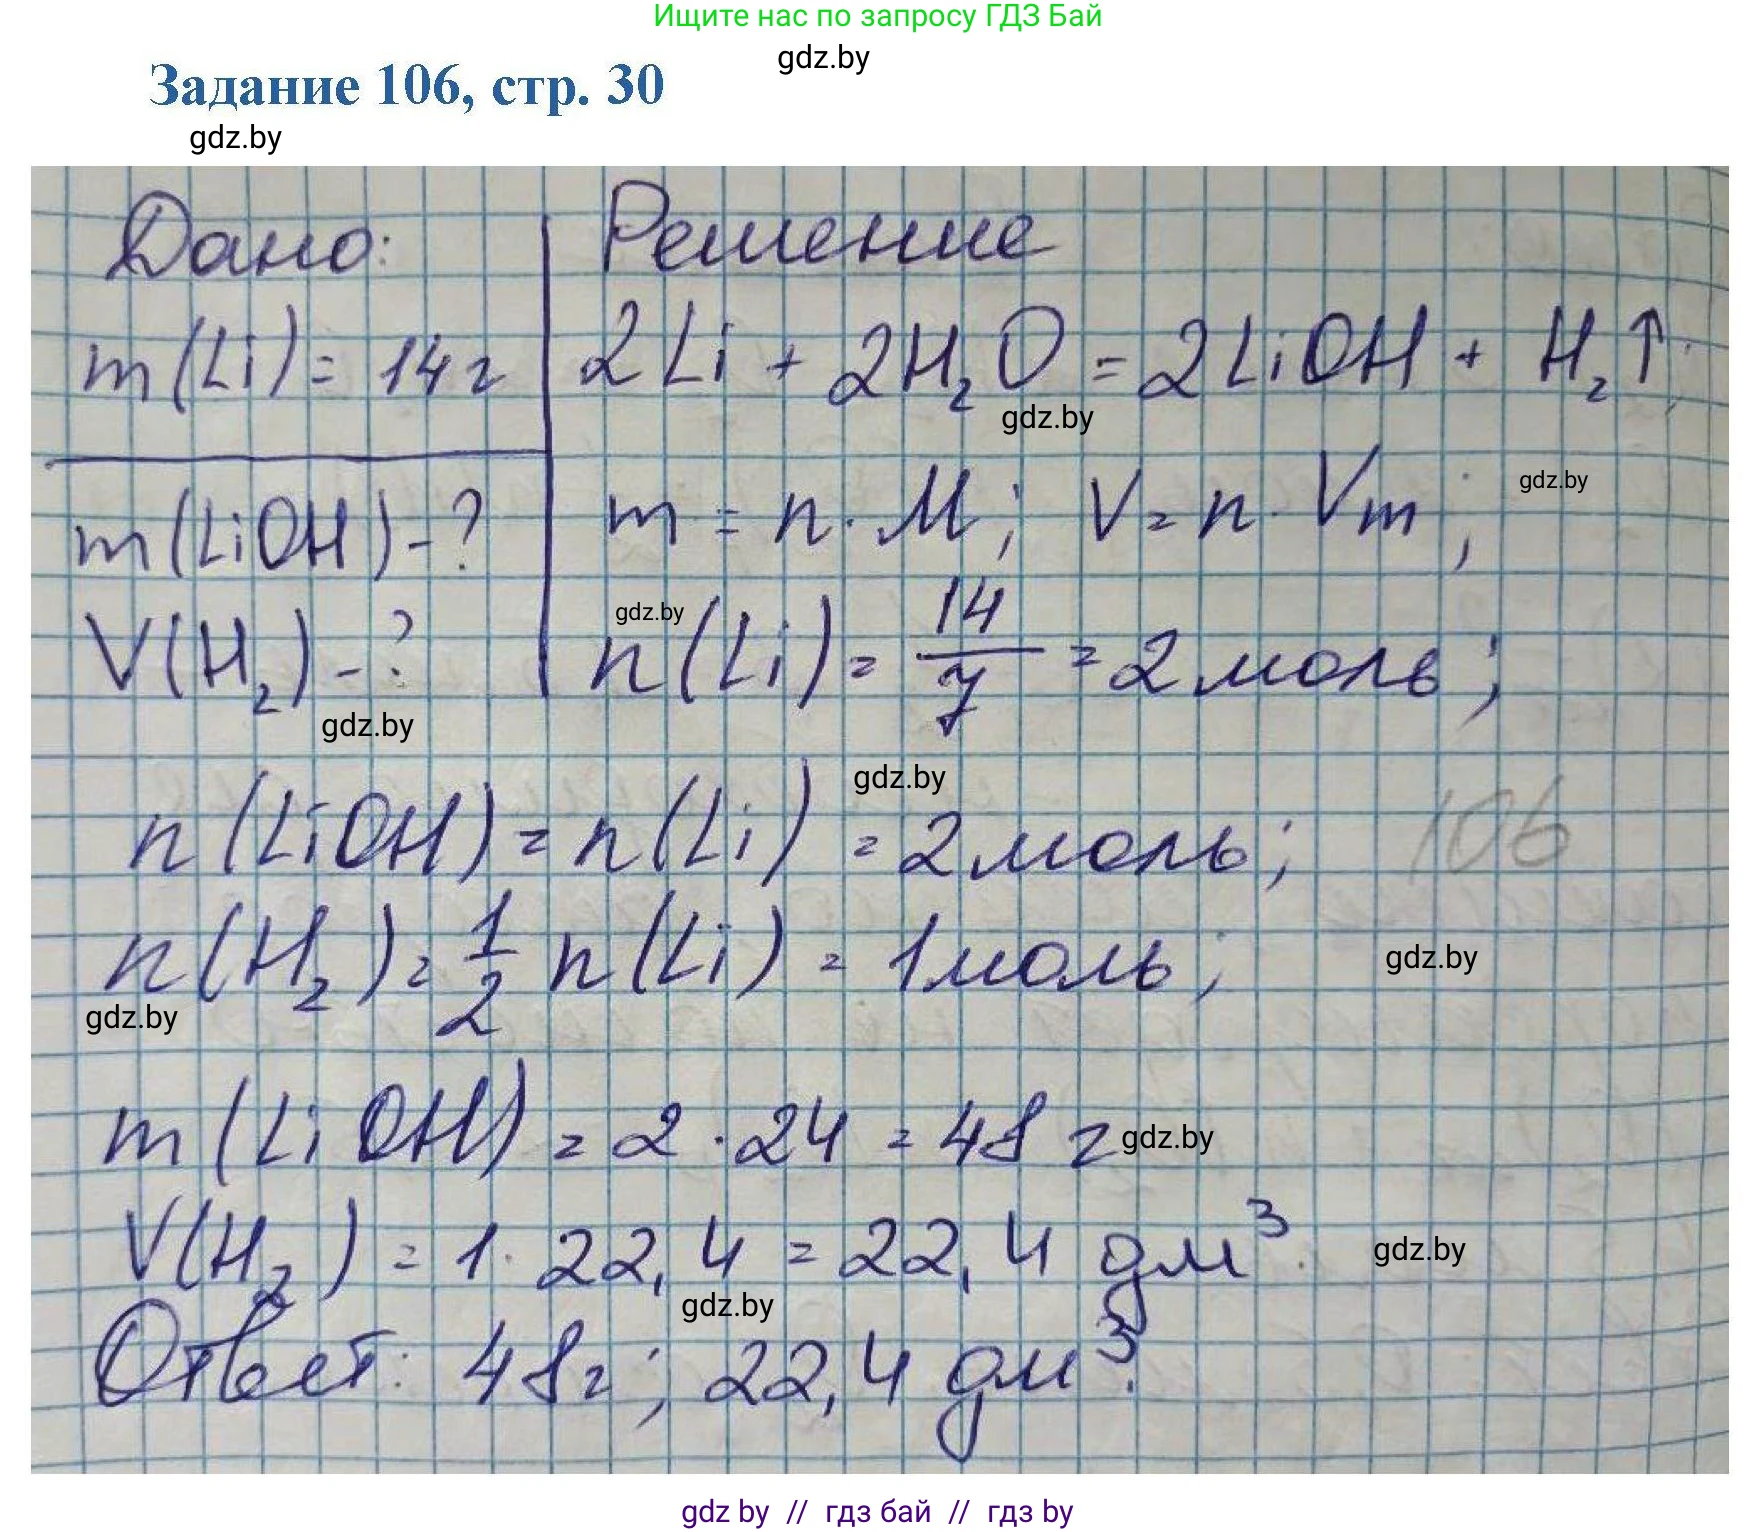 Ищите нас по запросу ГДЗ Бай
gdz.by
Задание 106, стр. 30
gdz.by
Дано:
m(Li) = 14 г
m(LiOH) - ?
V(H₂) - ?
gdz.by
Решение
2Li + 2H₂O = 2LiOH + H₂↑;
gdz.by
m = n · M; V = n · Vm;
gdz.by
gdz.by
n(Li) = 14/7 = 2 моль;
gdz.by
n(LiOH) = n(Li) = 2 моль;
106
n(H₂) = 1/2 n(Li) = 1 моль;
gdz.by
gdz.by
m(LiOH) = 2 · 24 = 48 г
gdz.by
V(H₂) = 1 · 22,4 = 22,4 дм³.
gdz.by
gdz.by
Ответ: 48г; 22,4 дм³.
gdz by // гдз бай // гдз by